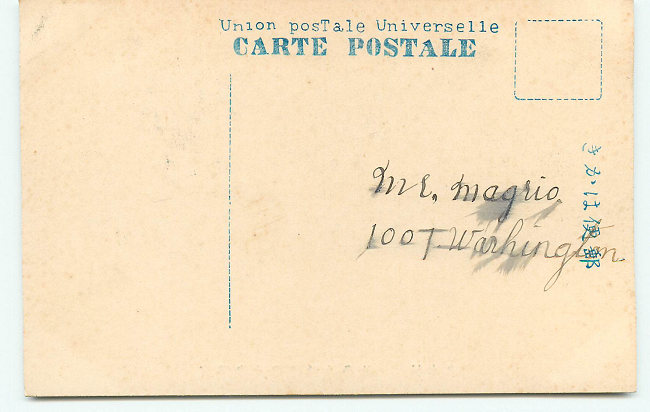 Union posTale Universelle
CARTE POSTALE
郵便はがき
Mr. Magrio.
1007 Washington.